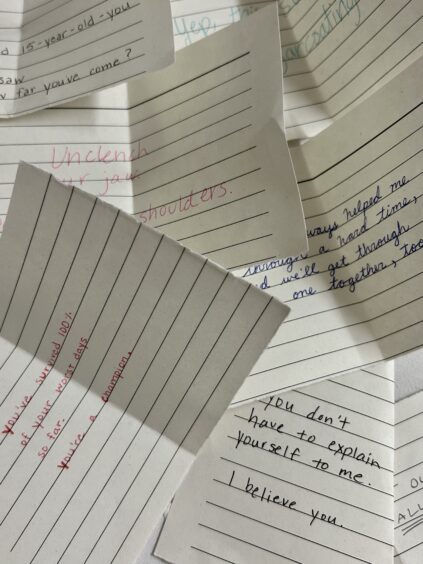 15-year-old-you
saw
far you've come?
Yep, this
sugarcoating
Unclench
your jaw.
shoulders.
always helped me
through a hard time,
and we'll get through
one together, too
You've survived 100%
of your worst days
so far.
You're a champion.
You don't
have to explain
yourself to me.
I believe you.